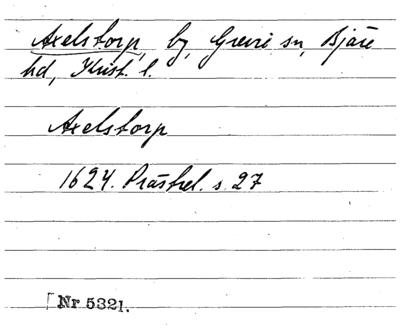 Axelstorp, by, Grevie sn, Bjäre
hd, Krist. l.
Axelstorp
1624. Prästrel. s. 27
Nr 5321.